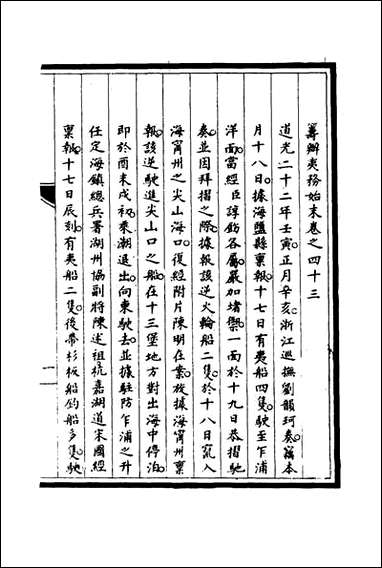 籌辦夷務始末卷之四十三
道光二十二年壬寅正月辛亥浙江巡撫劉韻珂奏竊本
月十八日據海鹽縣稟報十七日有夷船四隻駛至乍浦
洋面當經臣諄飭各屬嚴加堵禦一面於十九日恭摺馳
奏並因拜摺之際據報該逆火輪船二隻於十八日竄入
海甯州之尖山海口復經附片陳明在案旋據海甯州稟
報該逆駛進尖山口之船在十三堡地方對出海中停泊
即於酉末戌初乘潮退出向東駛去並據駐防乍浦之升
任定海鎮總兵署湖州協副將陳述祖杭嘉湖道宋國經
稟報十七日辰刻有夷船二隻後帶杉板船釣船多隻駛